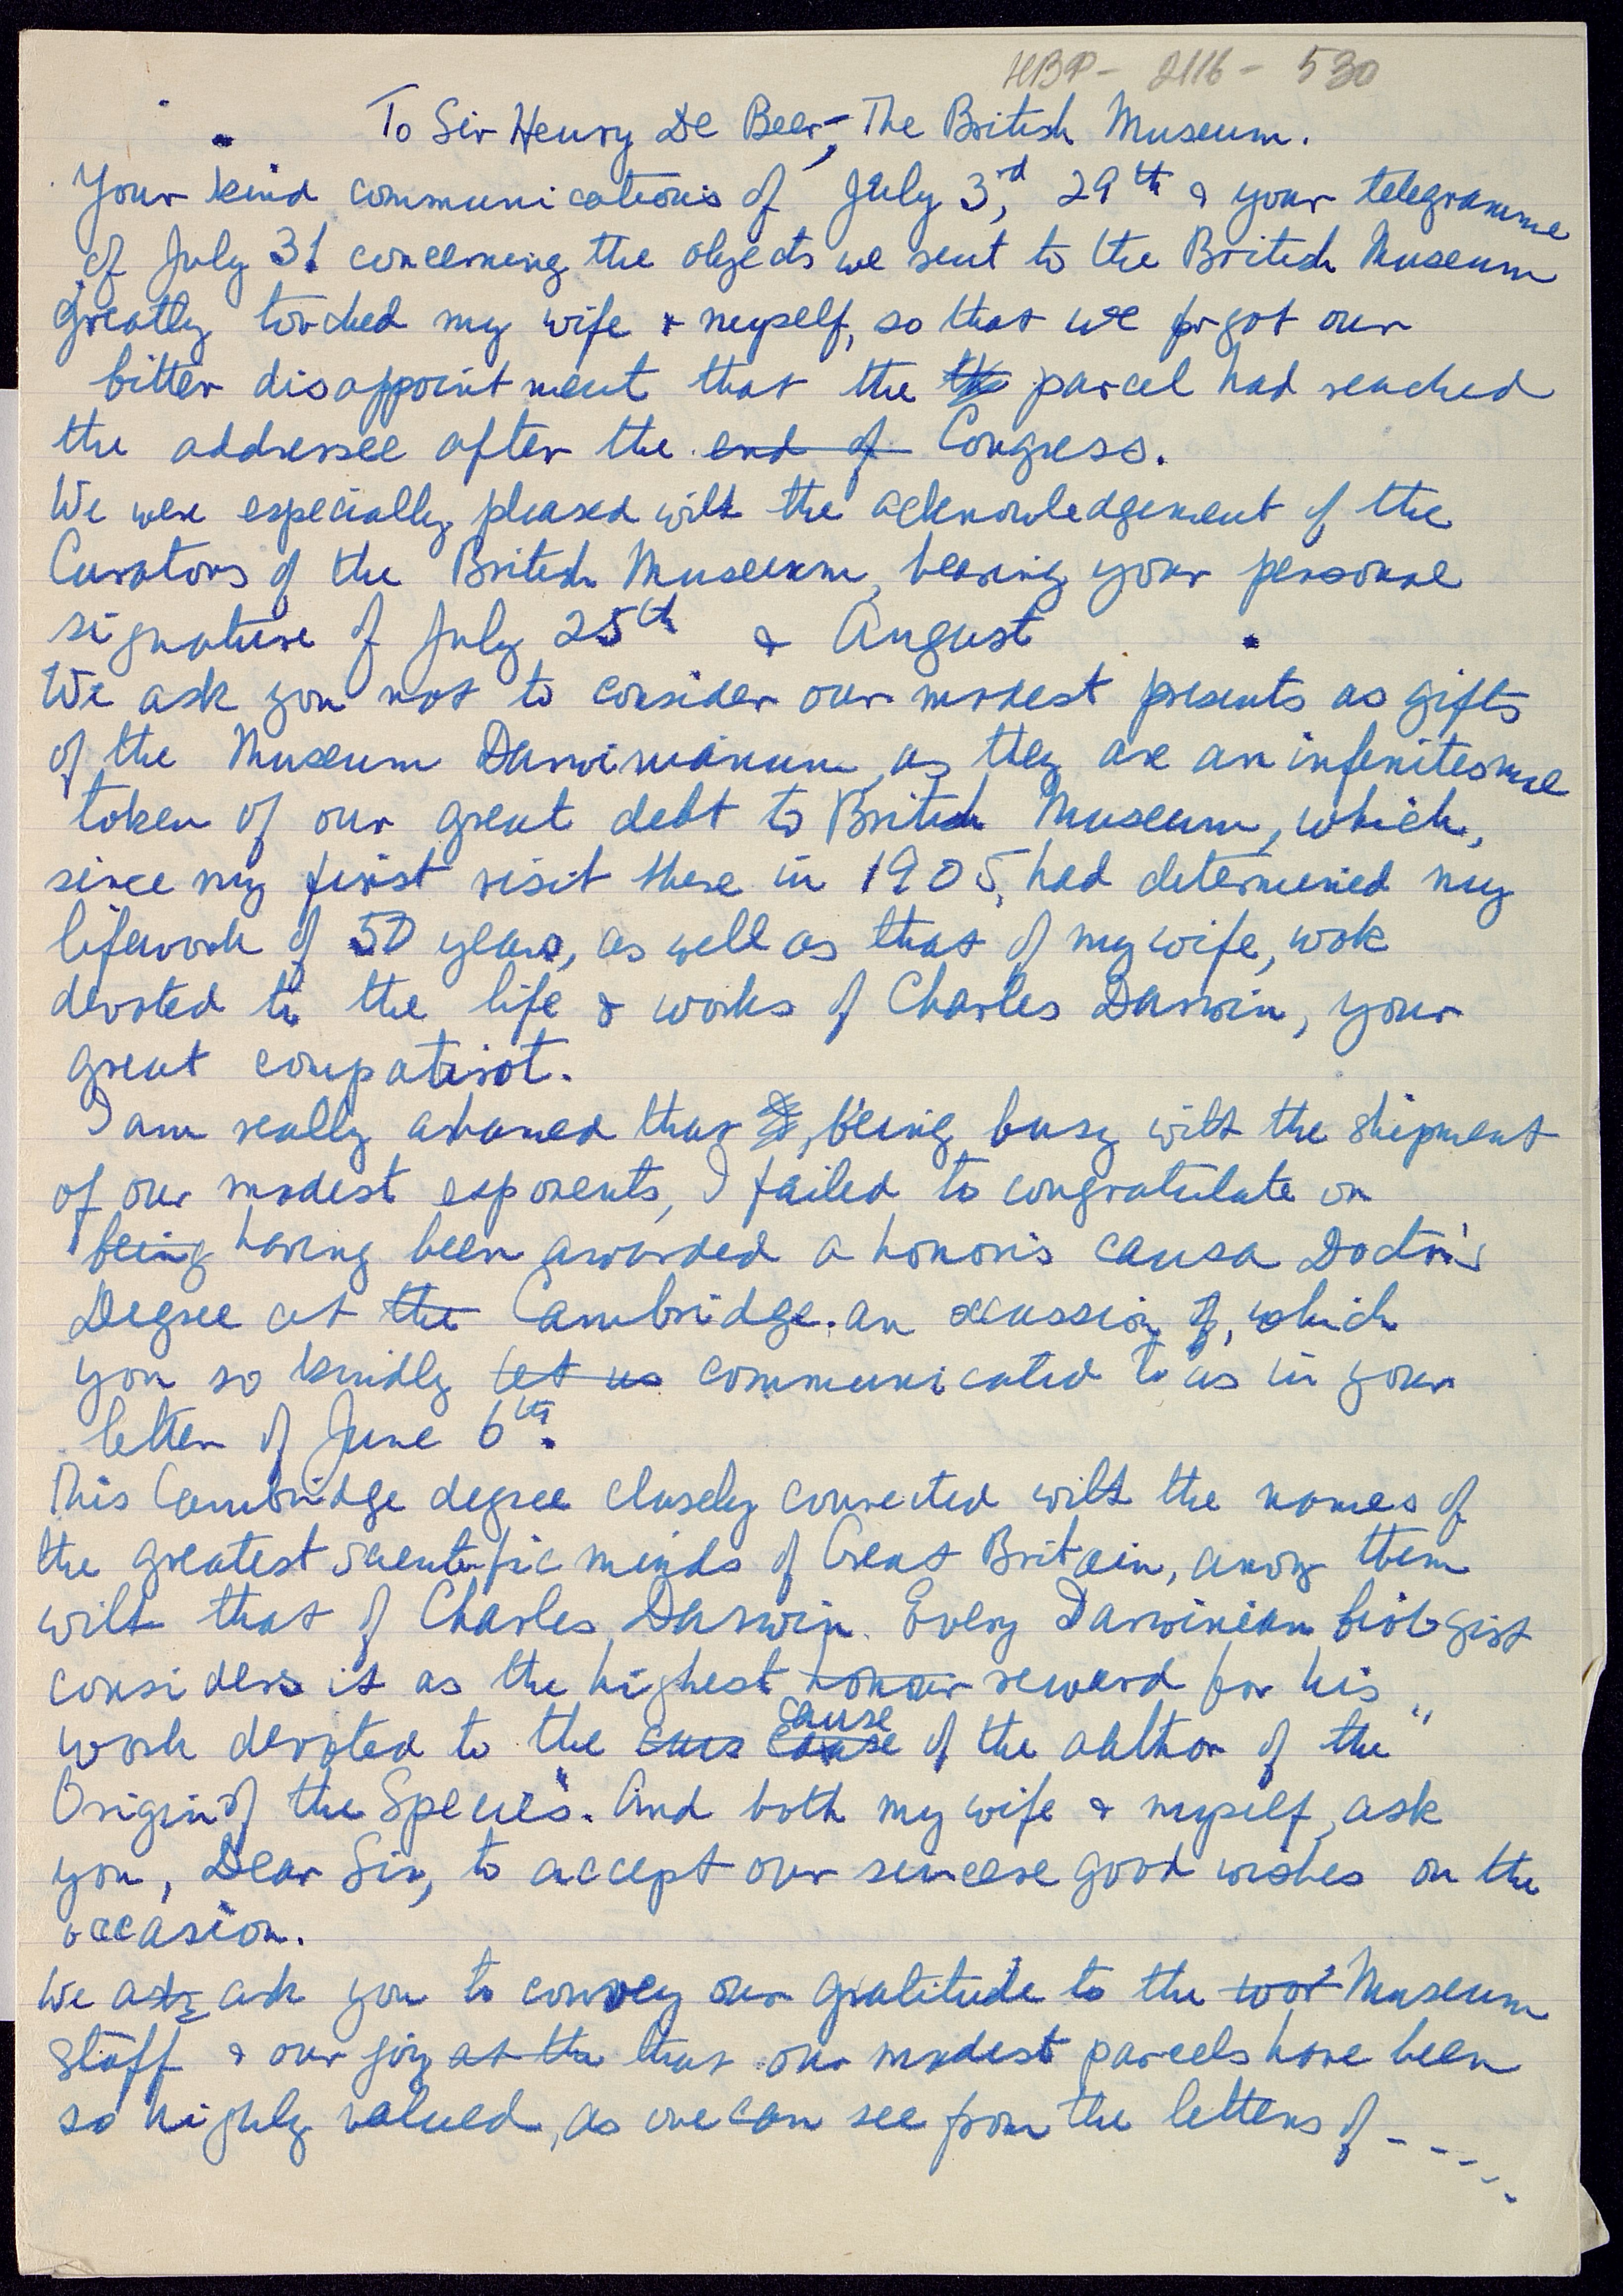 НВР - 2116 - 530
To Sir Henry De Beer, - The British Museum.
Your kind communications of July 3rd, 29th & your telegramme
of July 31 concerning the objects we sent to the British Museum
greatly torched my wife & myself, so that we forgot our
bitter disappointment that the the parcel had reached
the addressee after the end of Congress.
We were especially pleased with the acknowledgement of the
Curators of the British Museum, bearing your personal
signature of July 25th & August
We ask you not to consider our modest presents as gifts
of the Museum Darwinianum, as they are an infinitesmal
token of our great debt to British Museum, which,
since my first visit there in 1905, had determined my
lifework of 50 years, as well as that of my wife, wok
devoted to the life & works of Charles Darwin, your
great compatriot.
I am really ahamed that I, being busy with the shipment
of our modest exponents, I failed to congratulate on
being having been awarded a honoris causa Doctor's
Degree at the Cambridge. an occassion of, which
you so kindly let us communicated to us in your
letter of June 6th.
This Cambridge degree closely connected with the names of
the greatest scientific minds of Great Britain, among them
with that of Charles Darwin. Every Darwinian biologist
considers it as the highest honour reward for his
work devoted to the caus cause cause of the author of the "
Origin of the Species". And both my wife & myself, ask
you, Dear Sir, to accept our sincere good wishes on the
occasion.
We ask ask you to convey our gratitude to the wor Museum
staff & our joy at the that our modest parcels have been
so highly valued, as one can see from the letters of - - - - -